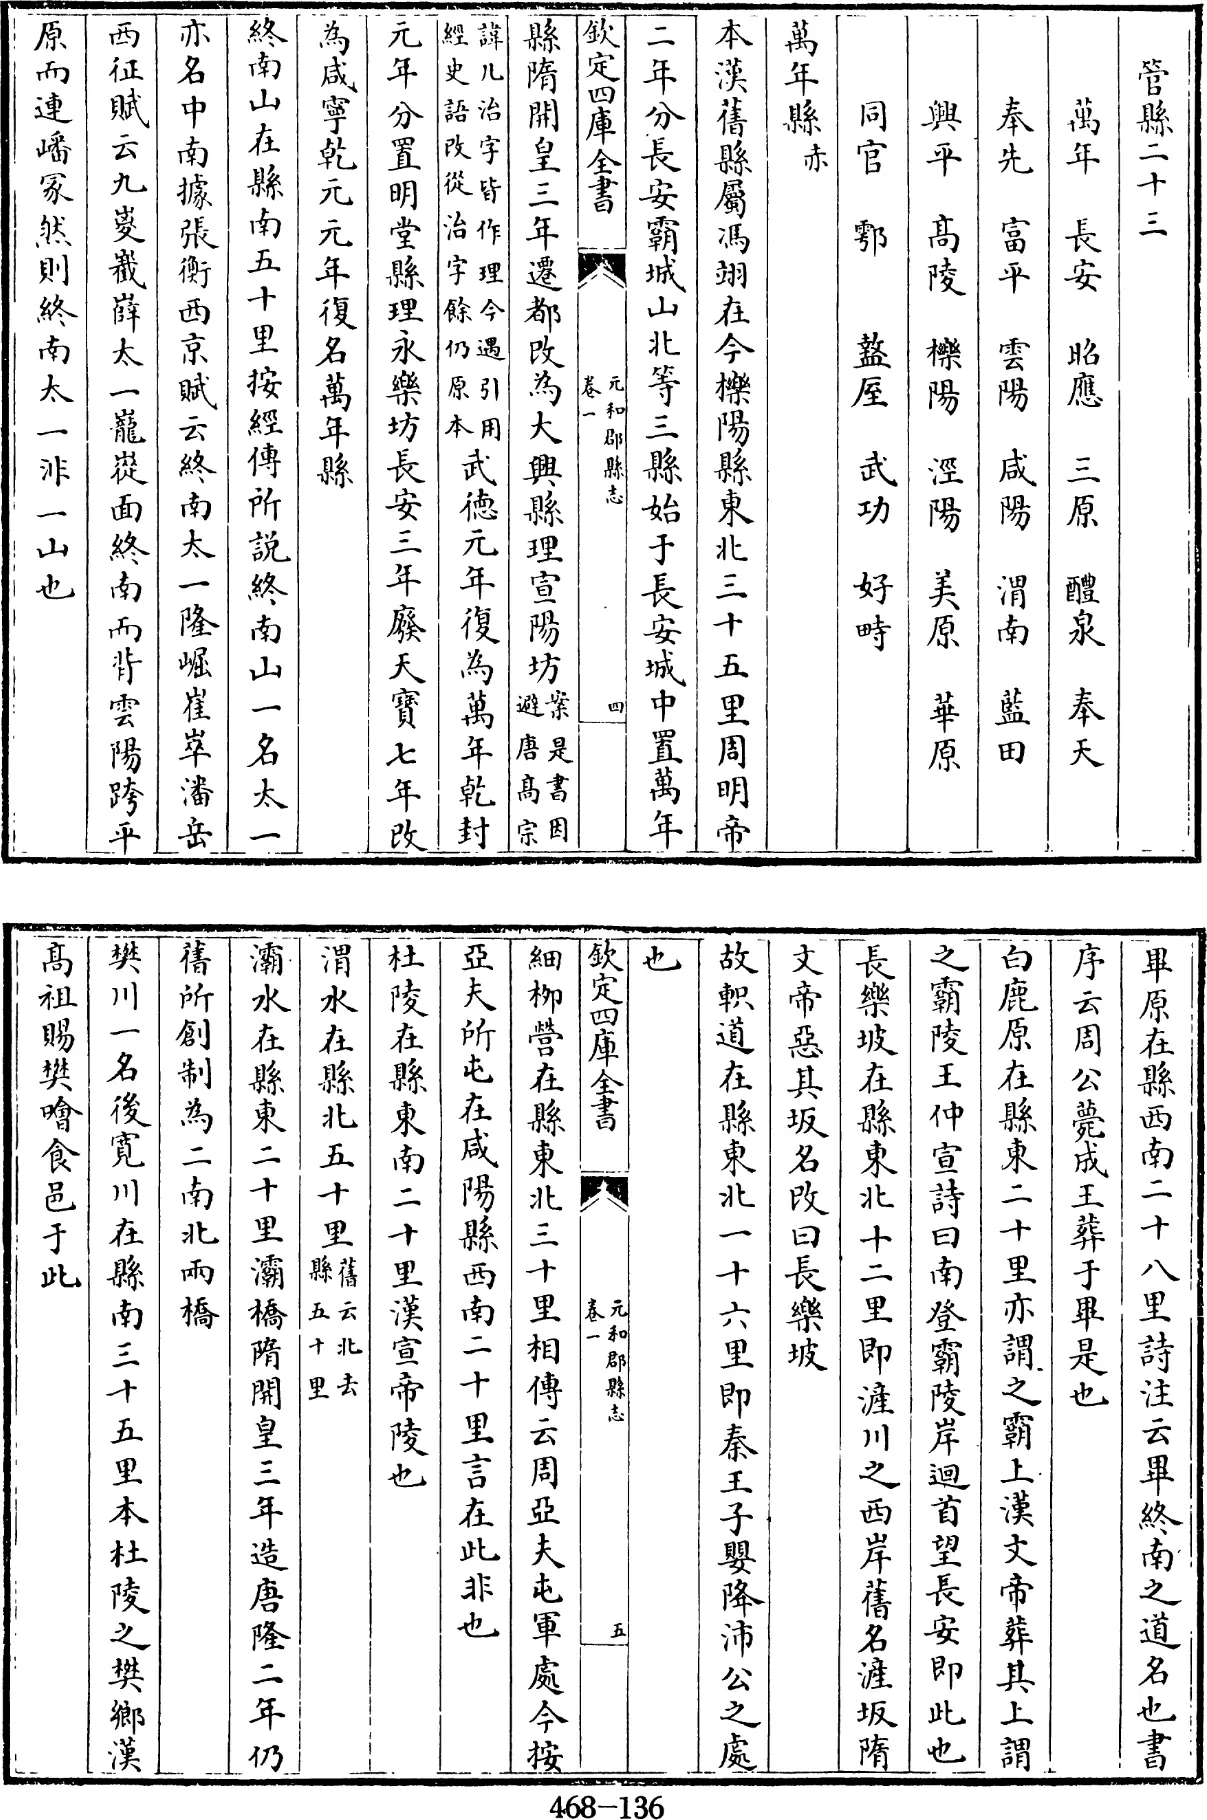 管縣二十三
萬年　長安　昭應　三原　醴泉　奉天
奉先　富平　雲陽　咸陽　渭南　藍田
興平　高陵　櫟陽　涇陽　美原　華原
同官　鄠　盩厔　武功　好畤
萬年縣 赤
本漢舊縣屬馮翊在今櫟陽縣東北三十五里周明帝
二年分長安霸城山北等三縣始于長安城中置萬年
欽定四庫全書　元和郡縣志 卷一　四
縣隋開皇三年遷都改為大興縣理宣陽坊 案是書因避唐高宗
諱凡治字皆作理今遇引用經史語改從治字餘仍原本 武德元年復為萬年乾封
元年分置明堂縣理永樂坊長安三年廢天寶七年改
為咸寧乾元元年復名萬年縣
終南山在縣南五十里按經傳所說終南山一名太一
亦名中南據張衡西京賦云終南太一隆崛崔崒潘岳
西征賦云九嵕巀嶭太一巃嵸面終南而背雲陽跨平
原而連嶓冢然則終南太一非一山也
畢原在縣西南二十八里詩注云畢終南之道名也書
序云周公薨成王葬于畢是也
白鹿原在縣東二十里亦謂之霸上漢文帝葬其上謂
之霸陵王仲宣詩曰南登霸陵岸迴首望長安即此也
長樂坡在縣東北十二里即滻川之西岸舊名滻坂隋
文帝惡其坂名改曰長樂坡
故軹道在縣東北一十六里即秦王子嬰降沛公之處
也
欽定四庫全書　元和郡縣志 卷一　五
細柳營在縣東北三十里相傳云周亞夫屯軍處今按
亞夫所屯在咸陽縣西南二十里言在此非也
杜陵在縣東南二十里漢宣帝陵也
渭水在縣北五十里 舊云北去縣五十里
灞水在縣東二十里灞橋隋開皇三年造唐隆二年仍
舊所創制為二南北兩橋
樊川一名後寬川在縣南三十五里本杜陵之樊鄉漢
高祖賜樊噲食邑于此
468—136